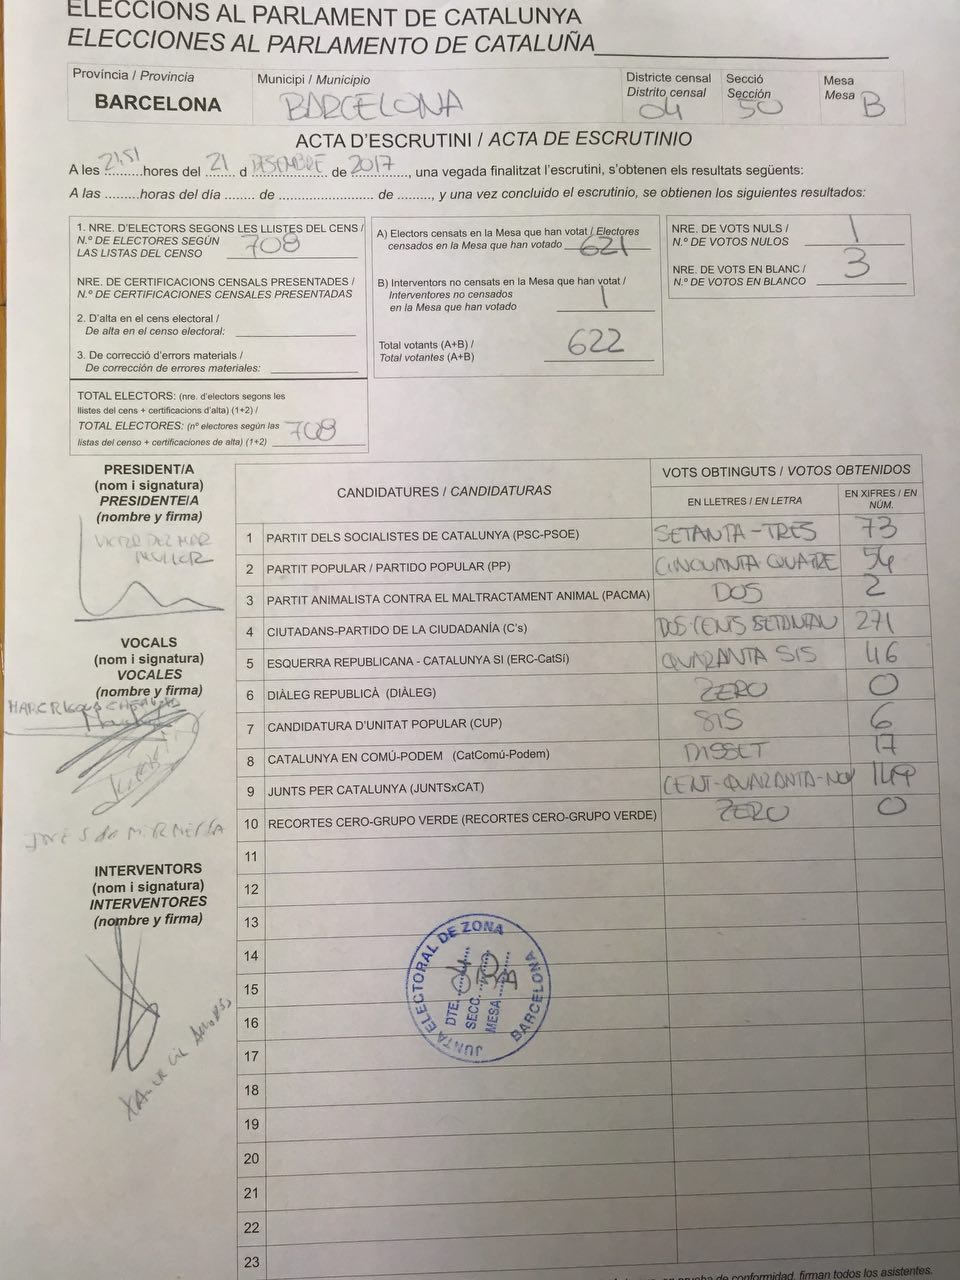 ELECCIONS AL PARLAMENT DE CATALUNYA
ELECCIONES AL PARLAMENTO DE CATALUÑA
Província / Provincia
BARCELONA
Municipi / Municipio
BARCELONA
Districte censal
Distrito censal
04
Secció
Sección
50
Mesa
Mesa B
ACTA D'ESCRUTINI / ACTA DE ESCRUTINIO
A les 21,51 hores del 21 d DESEMBRE de 2017, una vegada finalitzat l'escrutini, s'obtenen els resultats següents:
A las .........horas del día ........ de ......................... de ........., y una vez concluido el escrutinio, se obtienen los siguientes resultados:
1. NRE. D'ELECTORS SEGONS LES LLISTES DEL CENS /
N.º DE ELECTORES SEGÚN
LAS LISTAS DEL CENSO 708
NRE. DE CERTIFICACIONS CENSALS PRESENTADES /
N.º DE CERTIFICACIONES CENSALES PRESENTADAS
2. D'alta en el cens electoral /
De alta en el censo electoral:
3. De correcció d'errors materials /
De corrección de errores materiales:
TOTAL ELECTORS: (nre. d'electors segons les
llistes del cens + certificacions d'alta) (1+2) /
TOTAL ELECTORES: (nº electores según las
listas del censo + certificaciones de alta) (1+2) 708
A) Electors censats en la Mesa que han votat / Electores
censados en la Mesa que han votado 621
B) Interventors no censats en la Mesa que han votat /
Interventores no censados
en la Mesa que han votado 1
Total votants (A+B) /
Total votantes (A+B) 622
NRE. DE VOTS NULS /
N.º DE VOTOS NULOS 1
NRE. DE VOTS EN BLANC /
N.º DE VOTOS EN BLANCO 3
PRESIDENT/A
(nom i signatura)
PRESIDENTE/A
(nombre y firma)
VICTOR DEL MAR
MULLOR
VOCALS
(nom i signatura)
VOCALES
(nombre y firma)
INTERVENTORS
(nom i signatura)
INTERVENTORES
(nombre y firma)
CANDIDATURES / CANDIDATURAS
VOTS OBTINGUTS / VOTOS OBTENIDOS
EN LLETRES / EN LETRA
EN XIFRES / EN NÚM.
1 PARTIT DELS SOCIALISTES DE CATALUNYA (PSC-PSOE) SETANTA-TRES 73
2 PARTIT POPULAR / PARTIDO POPULAR (PP) CINQUANTA QUATRE 54
3 PARTIT ANIMALISTA CONTRA EL MALTRACTAMENT ANIMAL (PACMA) DOS 2
4 CIUTADANS-PARTIDO DE LA CIUDADANÍA (C's) DOS CENTS SETANTAU 271
5 ESQUERRA REPUBLICANA - CATALUNYA SI (ERC-CatSí) QUARANTA SIS 46
6 DIÀLEG REPUBLICÀ (DIÀLEG) ZERO 0
7 CANDIDATURA D'UNITAT POPULAR (CUP) SIS 6
8 CATALUNYA EN COMÚ-PODEM (CatComú-Podem) DISSET 17
9 JUNTS PER CATALUNYA (JUNTSxCAT) CENT-QUARANTA-NOU 149
10 RECORTES CERO-GRUPO VERDE (RECORTES CERO-GRUPO VERDE) ZERO 0
11
12
13
14
15
16
17
18
19
20
21
22
23
JUNTA ELECTORAL DE ZONA
BARCELONA
DTE. 04
SECC. 50
MESA B
de conformidad, firman todos los asistentes.